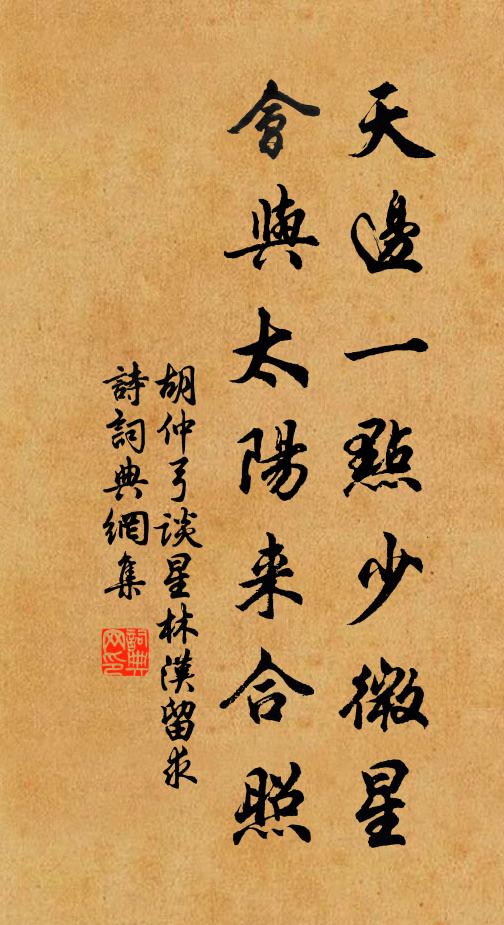 天邊一點少微星
會與太陽来合照
胡仲弓談星林漢留求
詩詞典網集
詞典网印